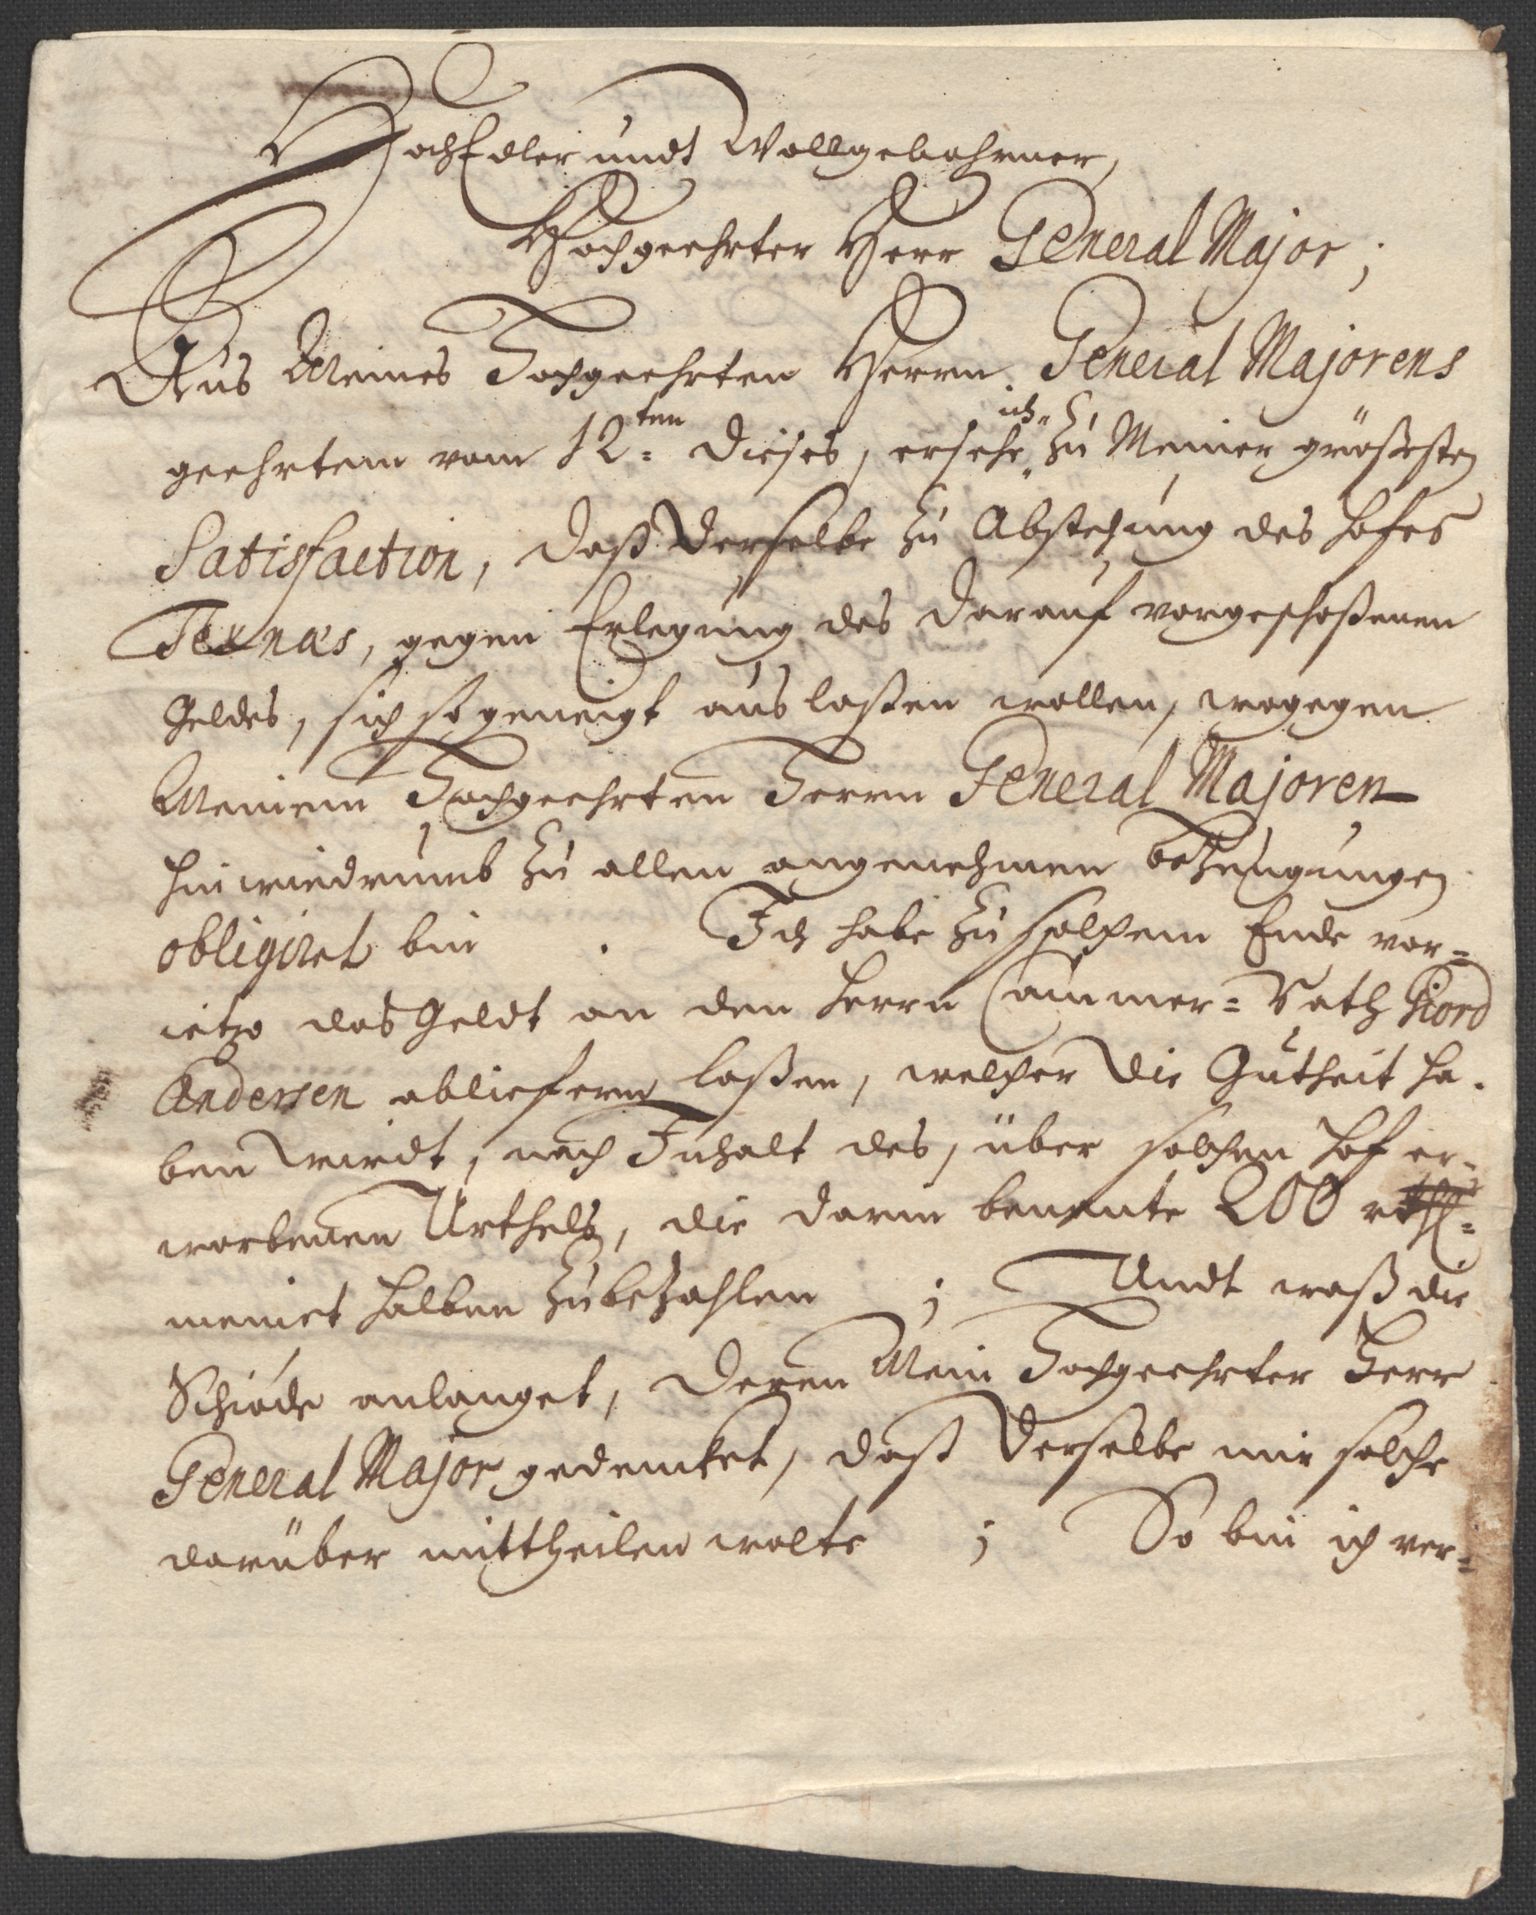 HochEdler undt Wollgebohrner,
Hochgeehrter Herr General Major;
Aus Meines Hochgeehrten Herrn General Majorens
geehrtem vom 12ten dieses, ersehe ich zu Meiner größesten
Satisfaction, daß derselbe zu Abstehung des Hofes
gegen Erlegung des darauf vorgeschoßenen
Geldes, sich so geneigt aus laßen wollen, wogegen
Meinem Hochgeehrten Herrn General Majoren
hinwiedrumb zu allen angenehmen bezeugungen
obligiret bin. Ich habe zu solchem Ende vor=
ietzo das Geldt an den Herrn Cammer=Rath Giord
Andersen abliefern laßen, welcher die Gutheit ha=
ben wirdt, nach Inhalt des, über solchen Hof er=
worbenen Urthels, die darin benente 200 rthl=
meinet halben zubezahlen; Undt waß die
Schiöde anlanget, deren Mein Hochgeehrter Herr
General Major gedencket, daß derselbe mir solche
darüber mittheilen wolte; So bin ich ver=